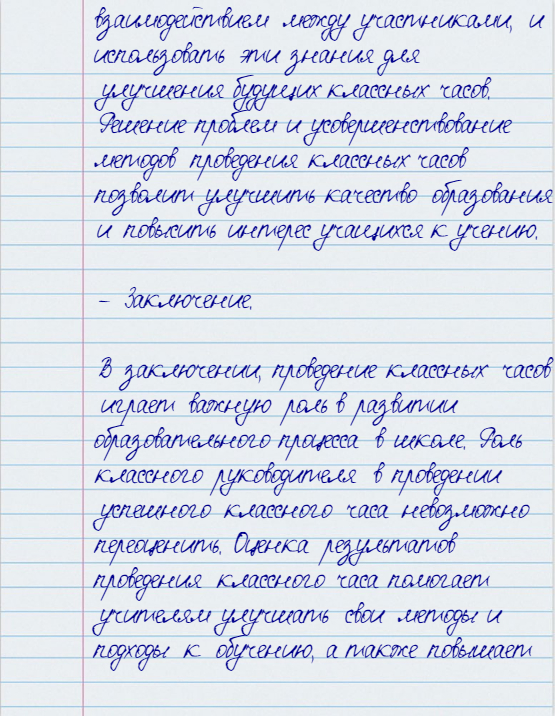 взаимодействием между участниками, и
использовать эти знания для
улучшения будущих классных часов.
Решение проблем и усовершенствование
методов проведения классных часов
позволит улучшить качество образования
и повысить интерес учащихся к учению.
- Заключение.
В заключении, проведение классных часов
играет важную роль в развитии
образовательного процесса в школе. Роль
классного руководителя в проведении
успешного классного часа невозможно
переоценить. Оценка результатов
проведения классного часа помогает
учителям улучшать свои методы и
подходы к обучению, а также повышает